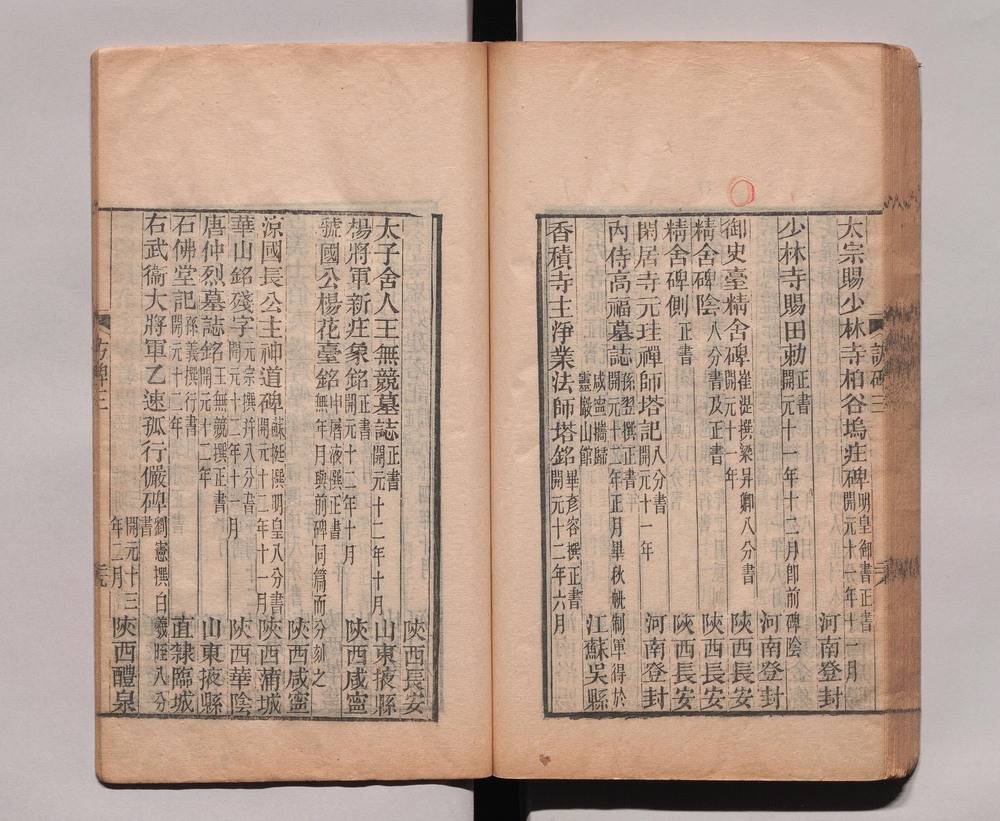 太宗賜少林寺柏谷塢莊碑 明皇御書正書 開元十一年十一月
河南登封
少林寺賜田勅 正書 開元十一年十二月即前碑陰
河南登封
御史臺精舍碑 崔湜撰梁昇卿八分書 開元十一年
陝西長安
精舍碑陰 八分書及正書
陝西長安
精舍碑側 正書
陝西長安
閑居寺元珪禪師塔記 八分書 開元十一年
河南登封
內侍高福墓誌 孫翌撰正書 開元十二年正月畢秋帆制軍得於咸寧攜歸靈巖山館
江蘇吳縣
香積寺主淨業法師塔銘 畢彥容撰正書 開元十二年六月
陝西長安
太子舍人王無競墓誌 正書 開元十二年十月
山東掖縣
楊將軍新莊象銘 正書 開元十二年十月
陝西咸寧
虢國公楊花臺銘 申屠液撰正書 無年月與前碑同篇而分刻之
陝西咸寧
涼國長公主神道碑 蘇頲撰明皇八分書 開元十二年十一月
陝西蒲城
華山銘殘字 元宗撰并八分書 開元十二年十一月
陝西華陰
唐仲烈墓誌銘 王無競撰正書 開元十二年
山東掖縣
石佛堂記 孫義撰行書 開元十二年
直隸臨城
右武衞大將軍乙速孤行儼碑 劉憲撰白羲晊八分書 開元十三年二月
陝西醴泉